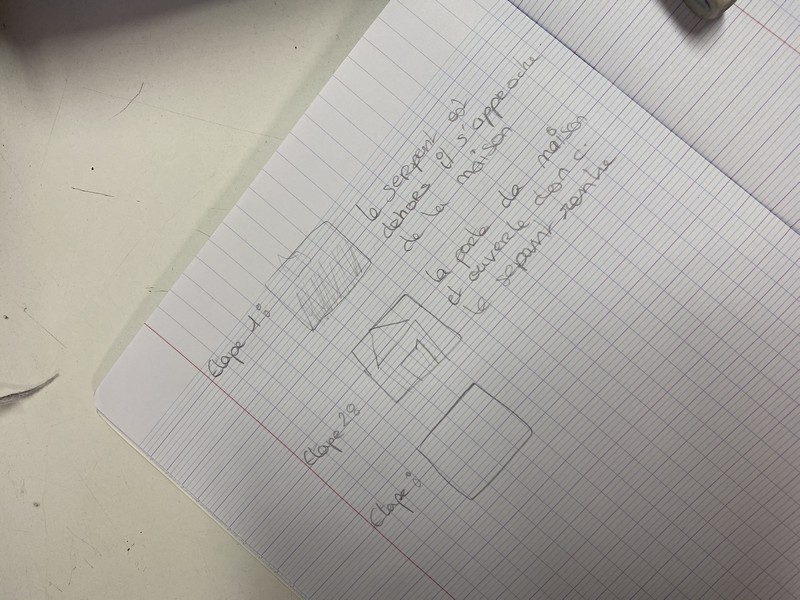 Etape 1:
le serpent est
dehors il s'approche.
de la maison
Etape 2:
la porte da maison
et ouverte donc.
le serpant rentre
Etape :